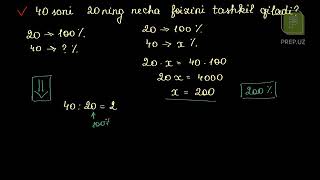 ✓ 40 soni 20 ning necha foizini tashkil qiladi?
PREP.UZ
20 → 100 %
40 → ? %
40 : 20 = 2
100%
20 → 100 %
40 → x %
20 · x = 40 · 100
20 x = 4000
x = 200
200 %